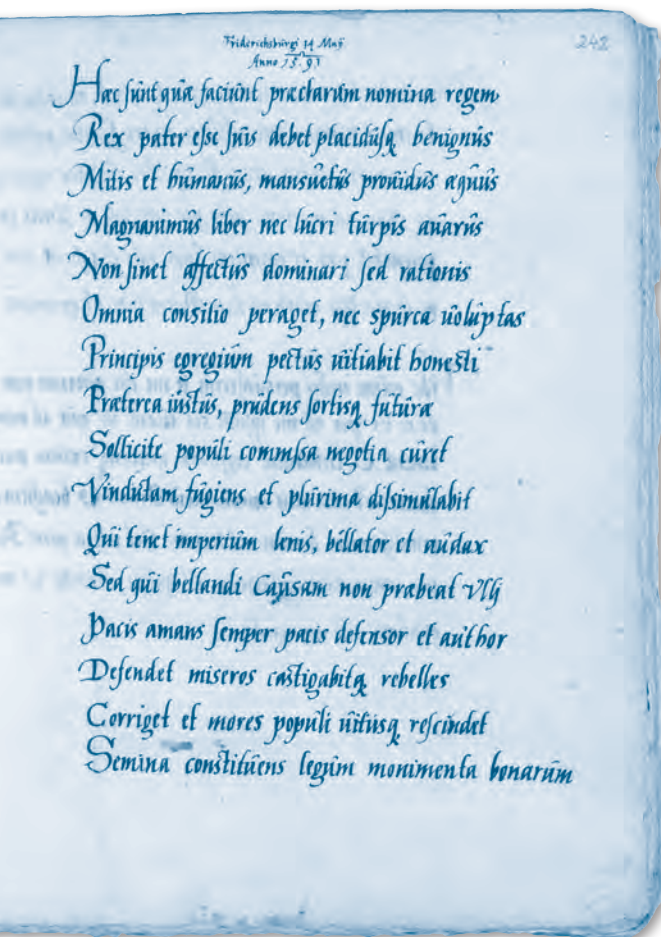 Friderichsburgi 14 Maij
Anno 1591
242
Hæc sunt quæ faciunt præclarum nomina regem
Rex pater esse suis debet placidusq benignus
Mitis et humanus, mansuetus prouidus æquus
Magnanimus liber nec lucri turpis auarus
Non sinet affectus dominari sed rationis
Omnia consilio peraget, nec spurca uoluptas
Principis egregium pectus uitiabit honesti
Præterea iustus, prudens fortisq futuræ
Sollicite populi commissa negotia curet
Vindictam fugiens et plurima dissimulabit
Qui tenet imperium lenis, bellator et audax
Sed qui bellandi Causam non præbeat Vllj
Pacis amans semper pacis defensor et author
Defendet miseros castigabitq rebelles
Corriget et mores populi uitiisq rescindet
Semina constituens legum monimenta bonarum